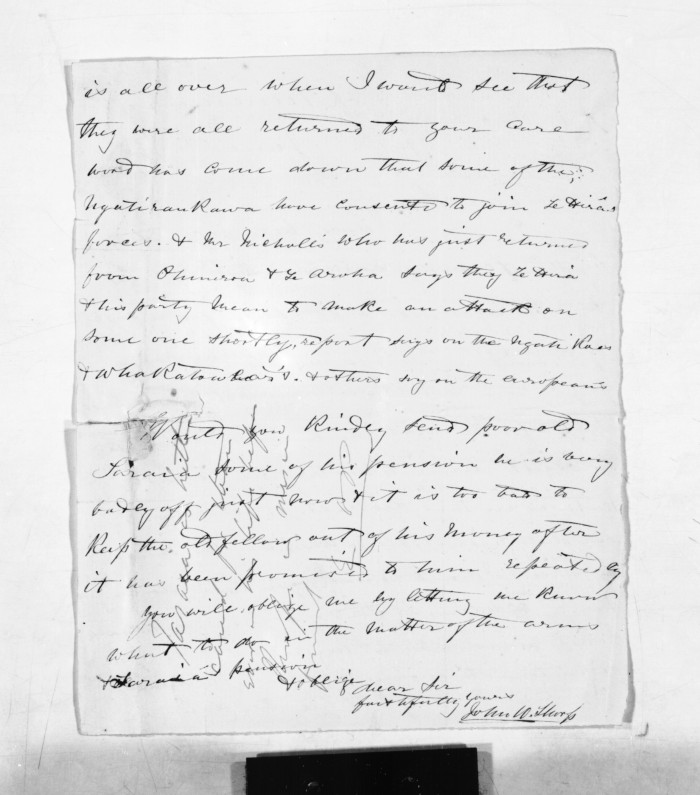 is all over when I would see that
they were all returned to your care
word has come down that some of the
Ngatiraukawa have consented to join Te Hira's
forces. & Mr Nicholls who has just returned
from Ohinerou & Te Aroha says they Te Hira
& his party mean to make an attack on
some one shortly, report says on the Ngati Paoa
& Whakatowhia's. & others say on the europeans
Would you kindly send poor old
Taraia some of his pension he is very
badly off just now & it is too bad to
keep the old fellow out of his money after
it has been promised to him repeatedly
You will oblige me by letting me know
what to do in the matter of the arms
& Taraia's pension
& oblige dear Sir
faithfully yours
John W. Thorp